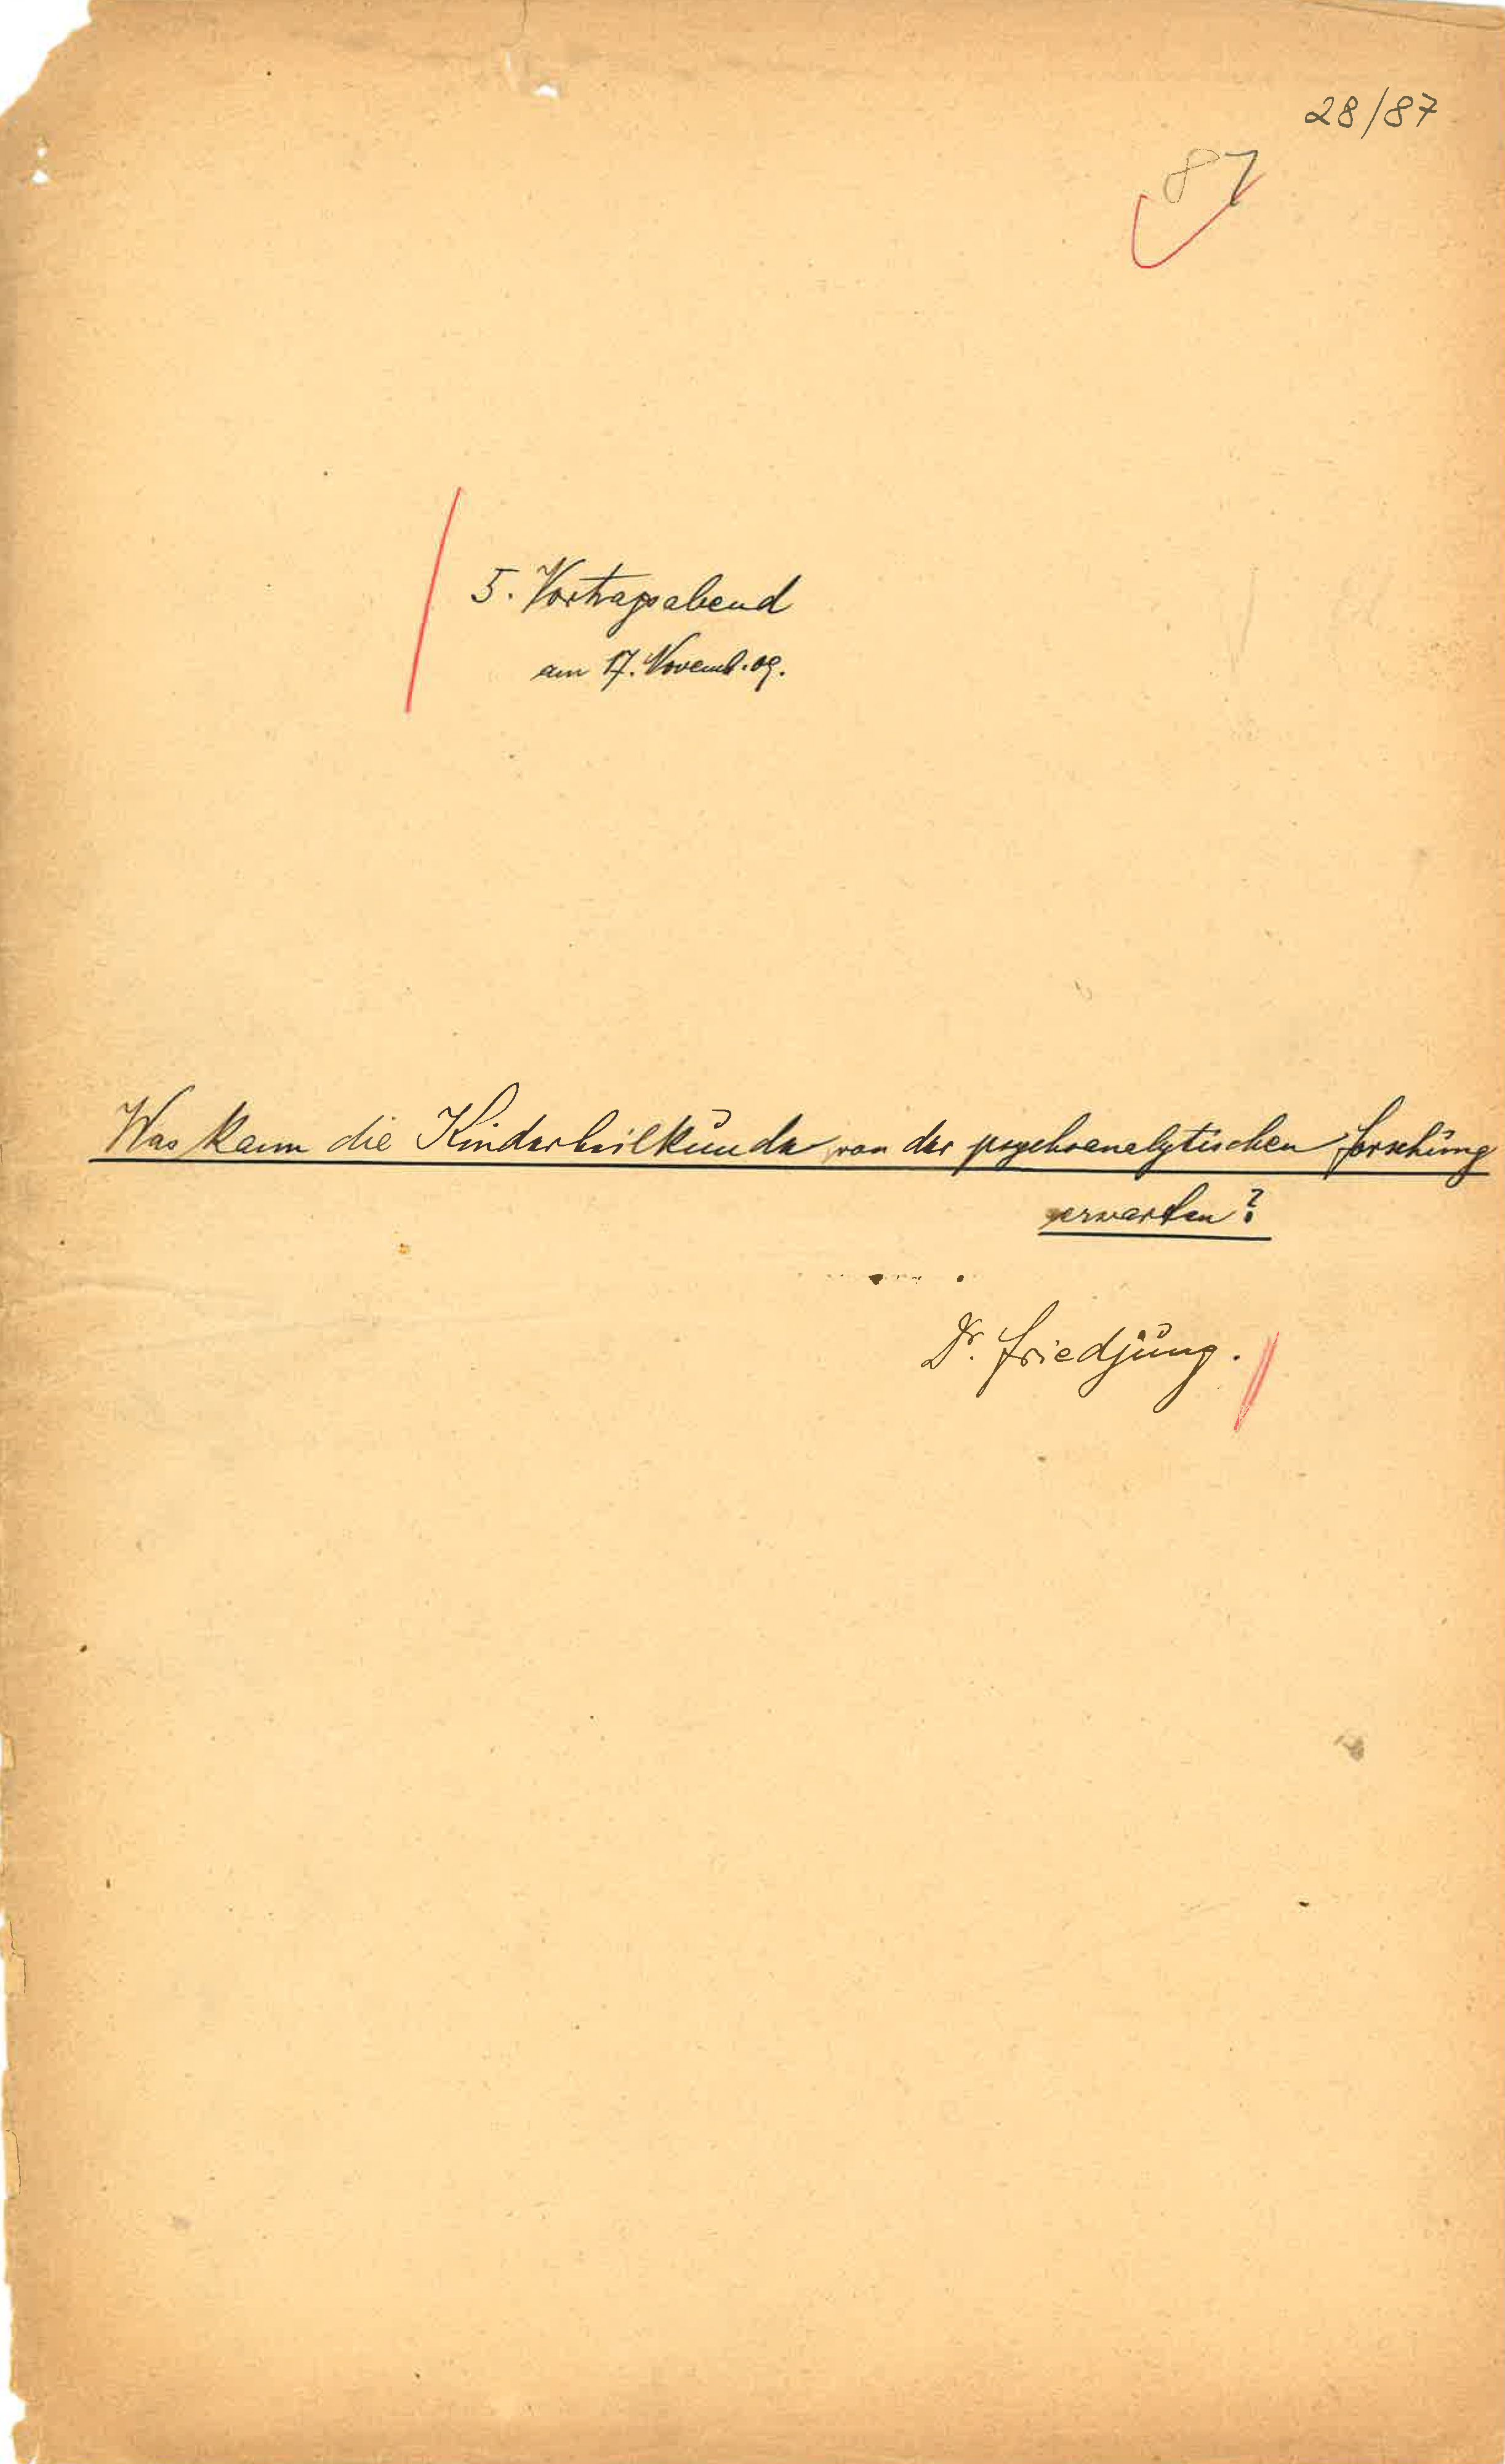 28/87
87
5. Vortragsabend
am 17. Novemb. 09.
Was kann die Kinderheilkunde von der psychoanalytischen Forschung
erwarten?
Dr. Friedjung.